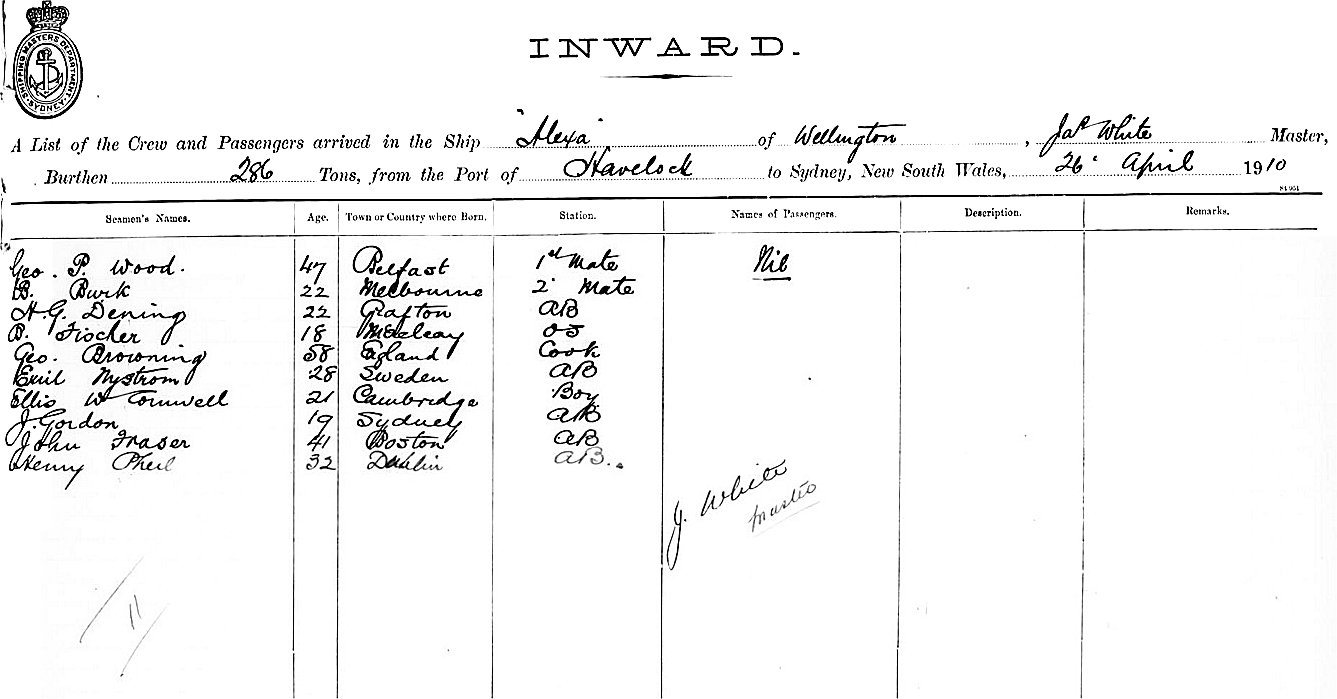 SHIPPING MASTERS DEPARTMENT. SYDNEY
INWARD.
A List of the Crew and Passengers arrived in the Ship "Alexa" of Wellington, Jas White Master,
Burthen 286 Tons, from the Port of Havelock to Sydney, New South Wales, 26 April 1910
Seamen's Names. Age. Town or Country where Born. Station. Names of Passengers. Description. Remarks.
Geo. P. Wood. 47 Belfast 1st Mate Nil
B. Burk 22 Melbourne 2 Mate
H. G. Dening 22 Grafton AB
B. Fischer 18 Macleay OS
Geo. Browning 58 England Cook
Emil Nystrom 28 Sweden AB
Ellis W Cornwell 21 Cambridge Boy
J. Gordon 19 Sydney AB
John Fraser 41 Boston AB
Henry 32 Dublin AB.
J. White
Master
11